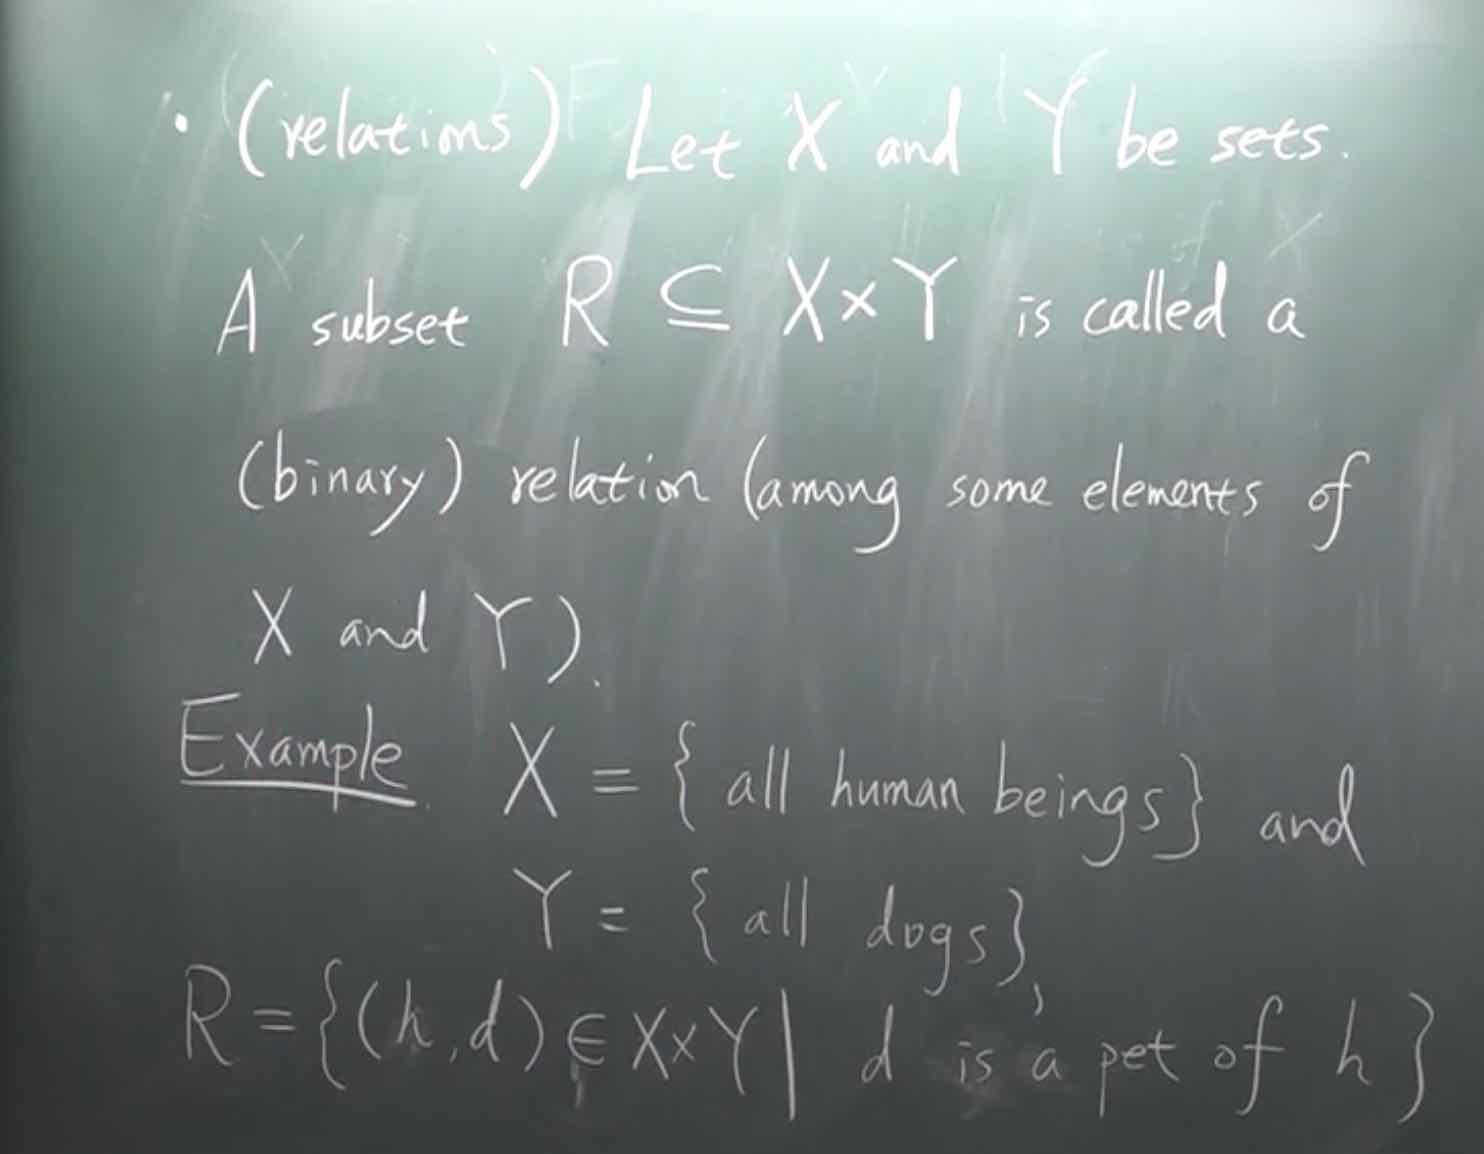 · (relations) Let X and Y be sets.
A subset R ⊆ X×Y is called a
(binary) relation (among some elements of
X and Y).
Example. X = { all human beings} and
Y = { all dogs},
R = {(h,d) ∈ X×Y | d is a pet of h}